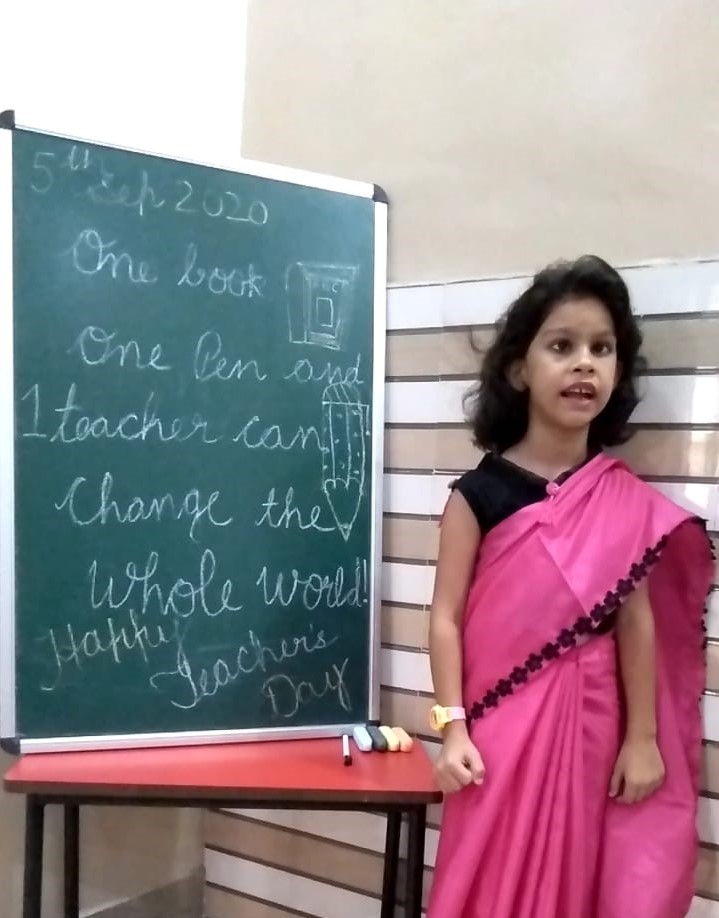 5th Sep 2020
One book
One Pen and
1 teacher can
Change the
Whole World!
Happy
Teacher's
Day